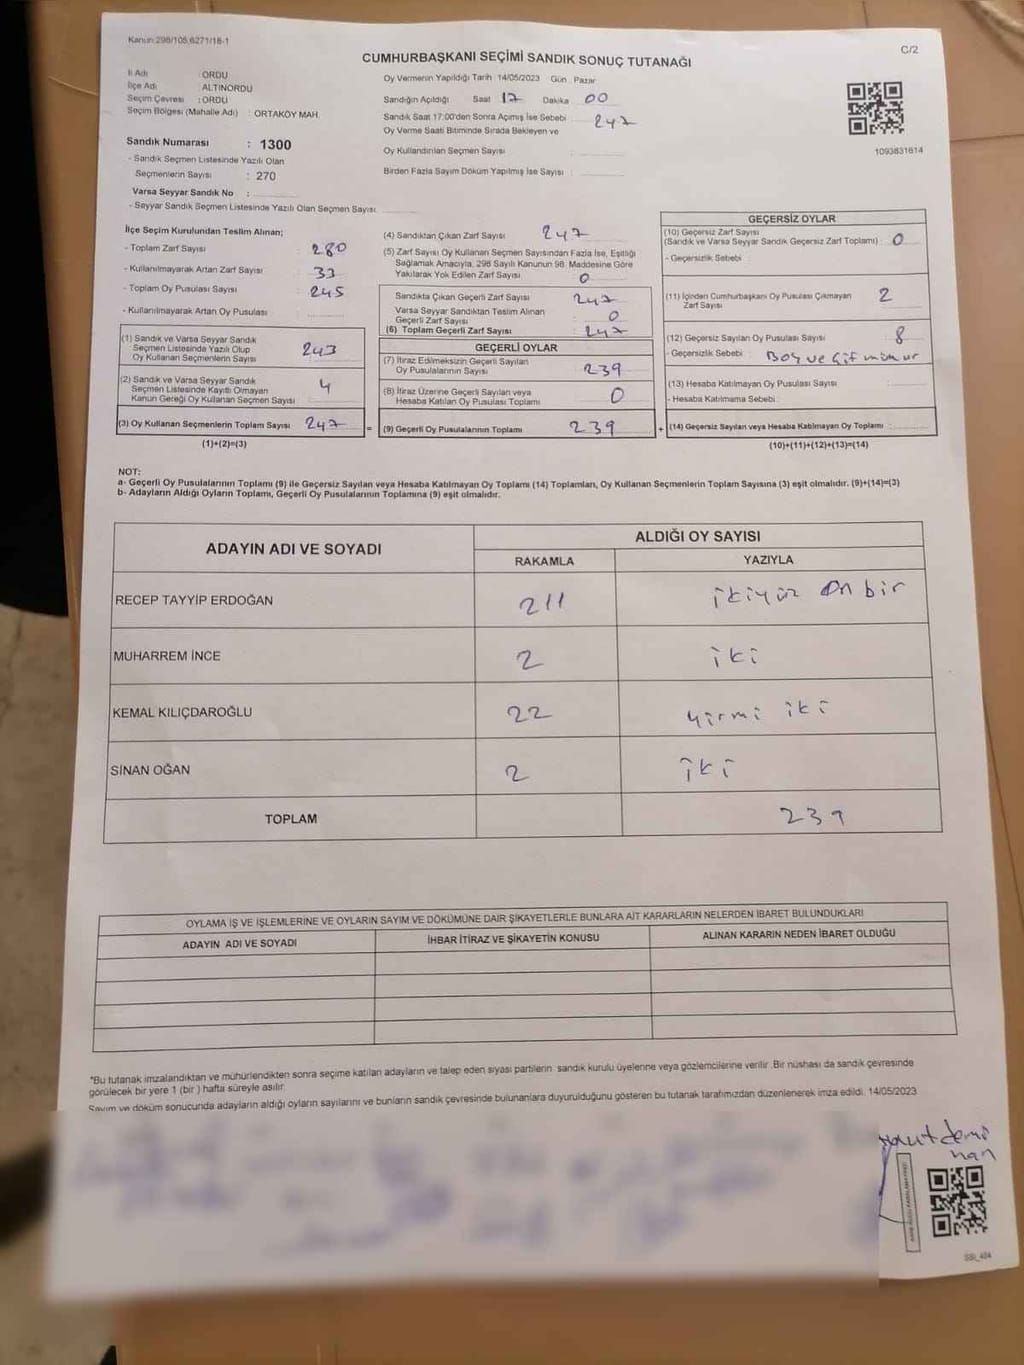 Kanun:298/105,6271/18-1
C/2
CUMHURBAŞKANI SEÇİMİ SANDIK SONUÇ TUTANAĞI
İl Adı : ORDU
İlçe Adı : ALTINORDU
Seçim Çevresi : ORDU
Seçim Bölgesi (Mahalle Adı) : ORTAKÖY MAH.
Oy Vermenin Yapıldığı Tarih 14/05/2023 Gün : Pazar
Sandığın Açıldığı Saat 17 Dakika 00
Sandık Saat 17:00'den Sonra Açımış İse Sebebi : 247
Oy Verme Saati Bitiminde Sırada Bekleyen ve
Oy Kullandırılan Seçmen Sayısı :
Birden Fazla Sayım Döküm Yapılmış İse Sayısı :
1093831614
Sandık Numarası : 1300
- Sandık Seçmen Listesinde Yazılı Olan
Seçmenlerin Sayısı : 270
Varsa Seyyar Sandık No :
- Seyyar Sandık Seçmen Listesinde Yazılı Olan Seçmen Sayısı
İlçe Seçim Kurulundan Teslim Alınan;
- Toplam Zarf Sayısı : 280
- Kullanılmayarak Artan Zarf Sayısı : 33
- Toplam Oy Pusulası Sayısı : 245
- Kullanılmayarak Artan Oy Pusulası :
(1) Sandık ve Varsa Seyyar Sandık
Seçmen Listesinde Yazılı Olup
Oy Kullanan Seçmenlerin Sayısı : 243
(2) Sandık ve Varsa Seyyar Sandık
Seçmen Listesinde Kayıtlı Olmayan
Kanun Gereği Oy Kullanan Seçmen Sayısı : 4
(3) Oy Kullanan Seçmenlerin Toplam Sayısı : 247
(1)+(2)=(3)
(4) Sandıktan Çıkan Zarf Sayısı : 247
(5) Zarf Sayısı Oy Kullanan Seçmen Sayısından Fazla İse, Eşitliği
Sağlamak Amacıyla, 298 Sayılı Kanunun 98. Maddesine Göre
Yakılarak Yok Edilen Zarf Sayısı : 0
Sandıkta Çıkan Geçerli Zarf Sayısı : 247
Varsa Seyyar Sandıktan Teslim Alınan
Geçerli Zarf Sayısı : 0
(6) Toplam Geçerli Zarf Sayısı : 247
GEÇERLİ OYLAR
(7) İtiraz Edilmeksizin Geçerli Sayılan
Oy Pusulalarının Sayısı : 239
(8) İtiraz Üzerine Geçerli Sayılan veya
Hesaba Katılan Oy Pusulası Toplamı : 0
= (9) Geçerli Oy Pusulalarının Toplamı : 239
GEÇERSİZ OYLAR
(10) Geçersiz Zarf Sayısı
(Sandık ve Varsa Seyyar Sandık Geçersiz Zarf Toplamı) : 0
- Geçersizlik Sebebi :
(11) İçinden Cumhurbaşkanı Oy Pusulası Çıkmayan
Zarf Sayısı 2
(12) Geçersiz Sayılan Oy Pusulası Sayısı : 8
- Geçersizlik Sebebi : Boş ve Çift mühür
(13) Hesaba Katılmayan Oy Pusulası Sayısı :
- Hesaba Katılmama Sebebi :
+ (14) Geçersiz Sayılan veya Hesaba Katılmayan Oy Toplamı :
(10)+(11)+(12)+(13)=(14)
NOT:
a- Geçerli Oy Pusulalarının Toplamı (9) ile Geçersiz Sayılan veya Hesaba Katılmayan Oy Toplamı (14) Toplamları, Oy Kullanan Seçmenlerin Toplam Sayısına (3) eşit olmalıdır. (9)+(14)=(3)
b- Adayların Aldığı Oyların Toplamı, Geçerli Oy Pusulalarının Toplamına (9) eşit olmalıdır.
ADAYIN ADI VE SOYADI
ALDIĞI OY SAYISI
RAKAMLA YAZIYLA
RECEP TAYYİP ERDOĞAN 211 ikiyüz on bir
MUHARREM İNCE 2 iki
KEMAL KILIÇDAROĞLU 22 yirmi iki
SİNAN OĞAN 2 iki
TOPLAM 239
OYLAMA İŞ VE İŞLEMLERİNE VE OYLARIN SAYIM VE DÖKÜMÜNE DAİR ŞİKAYETLERLE BUNLARA AİT KARARLARIN NELERDEN İBARET BULUNDUKLARI
ADAYIN ADI VE SOYADI İHBAR İTİRAZ VE ŞİKAYETİN KONUSU ALINAN KARARIN NEDEN İBARET OLDUĞU
*Bu tutanak imzalandıktan ve mühürlendikten sonra seçime katılan adayların ve talep eden siyasi partilerin sandık kurulu üyelerine veya gözlemcilerine verilir. Bir nüshası da sandık çevresinde
görülecek bir yere 1 (bir) hafta süreyle asılır.
Sayım ve döküm sonucunda adayların aldığı oyların sayılarını ve bunların sandık çevresinde bulunanlara duyurulduğunu gösteren bu tutanak tarafımızdan düzenlenerek imza edildi. 14/05/2023
SSI_404